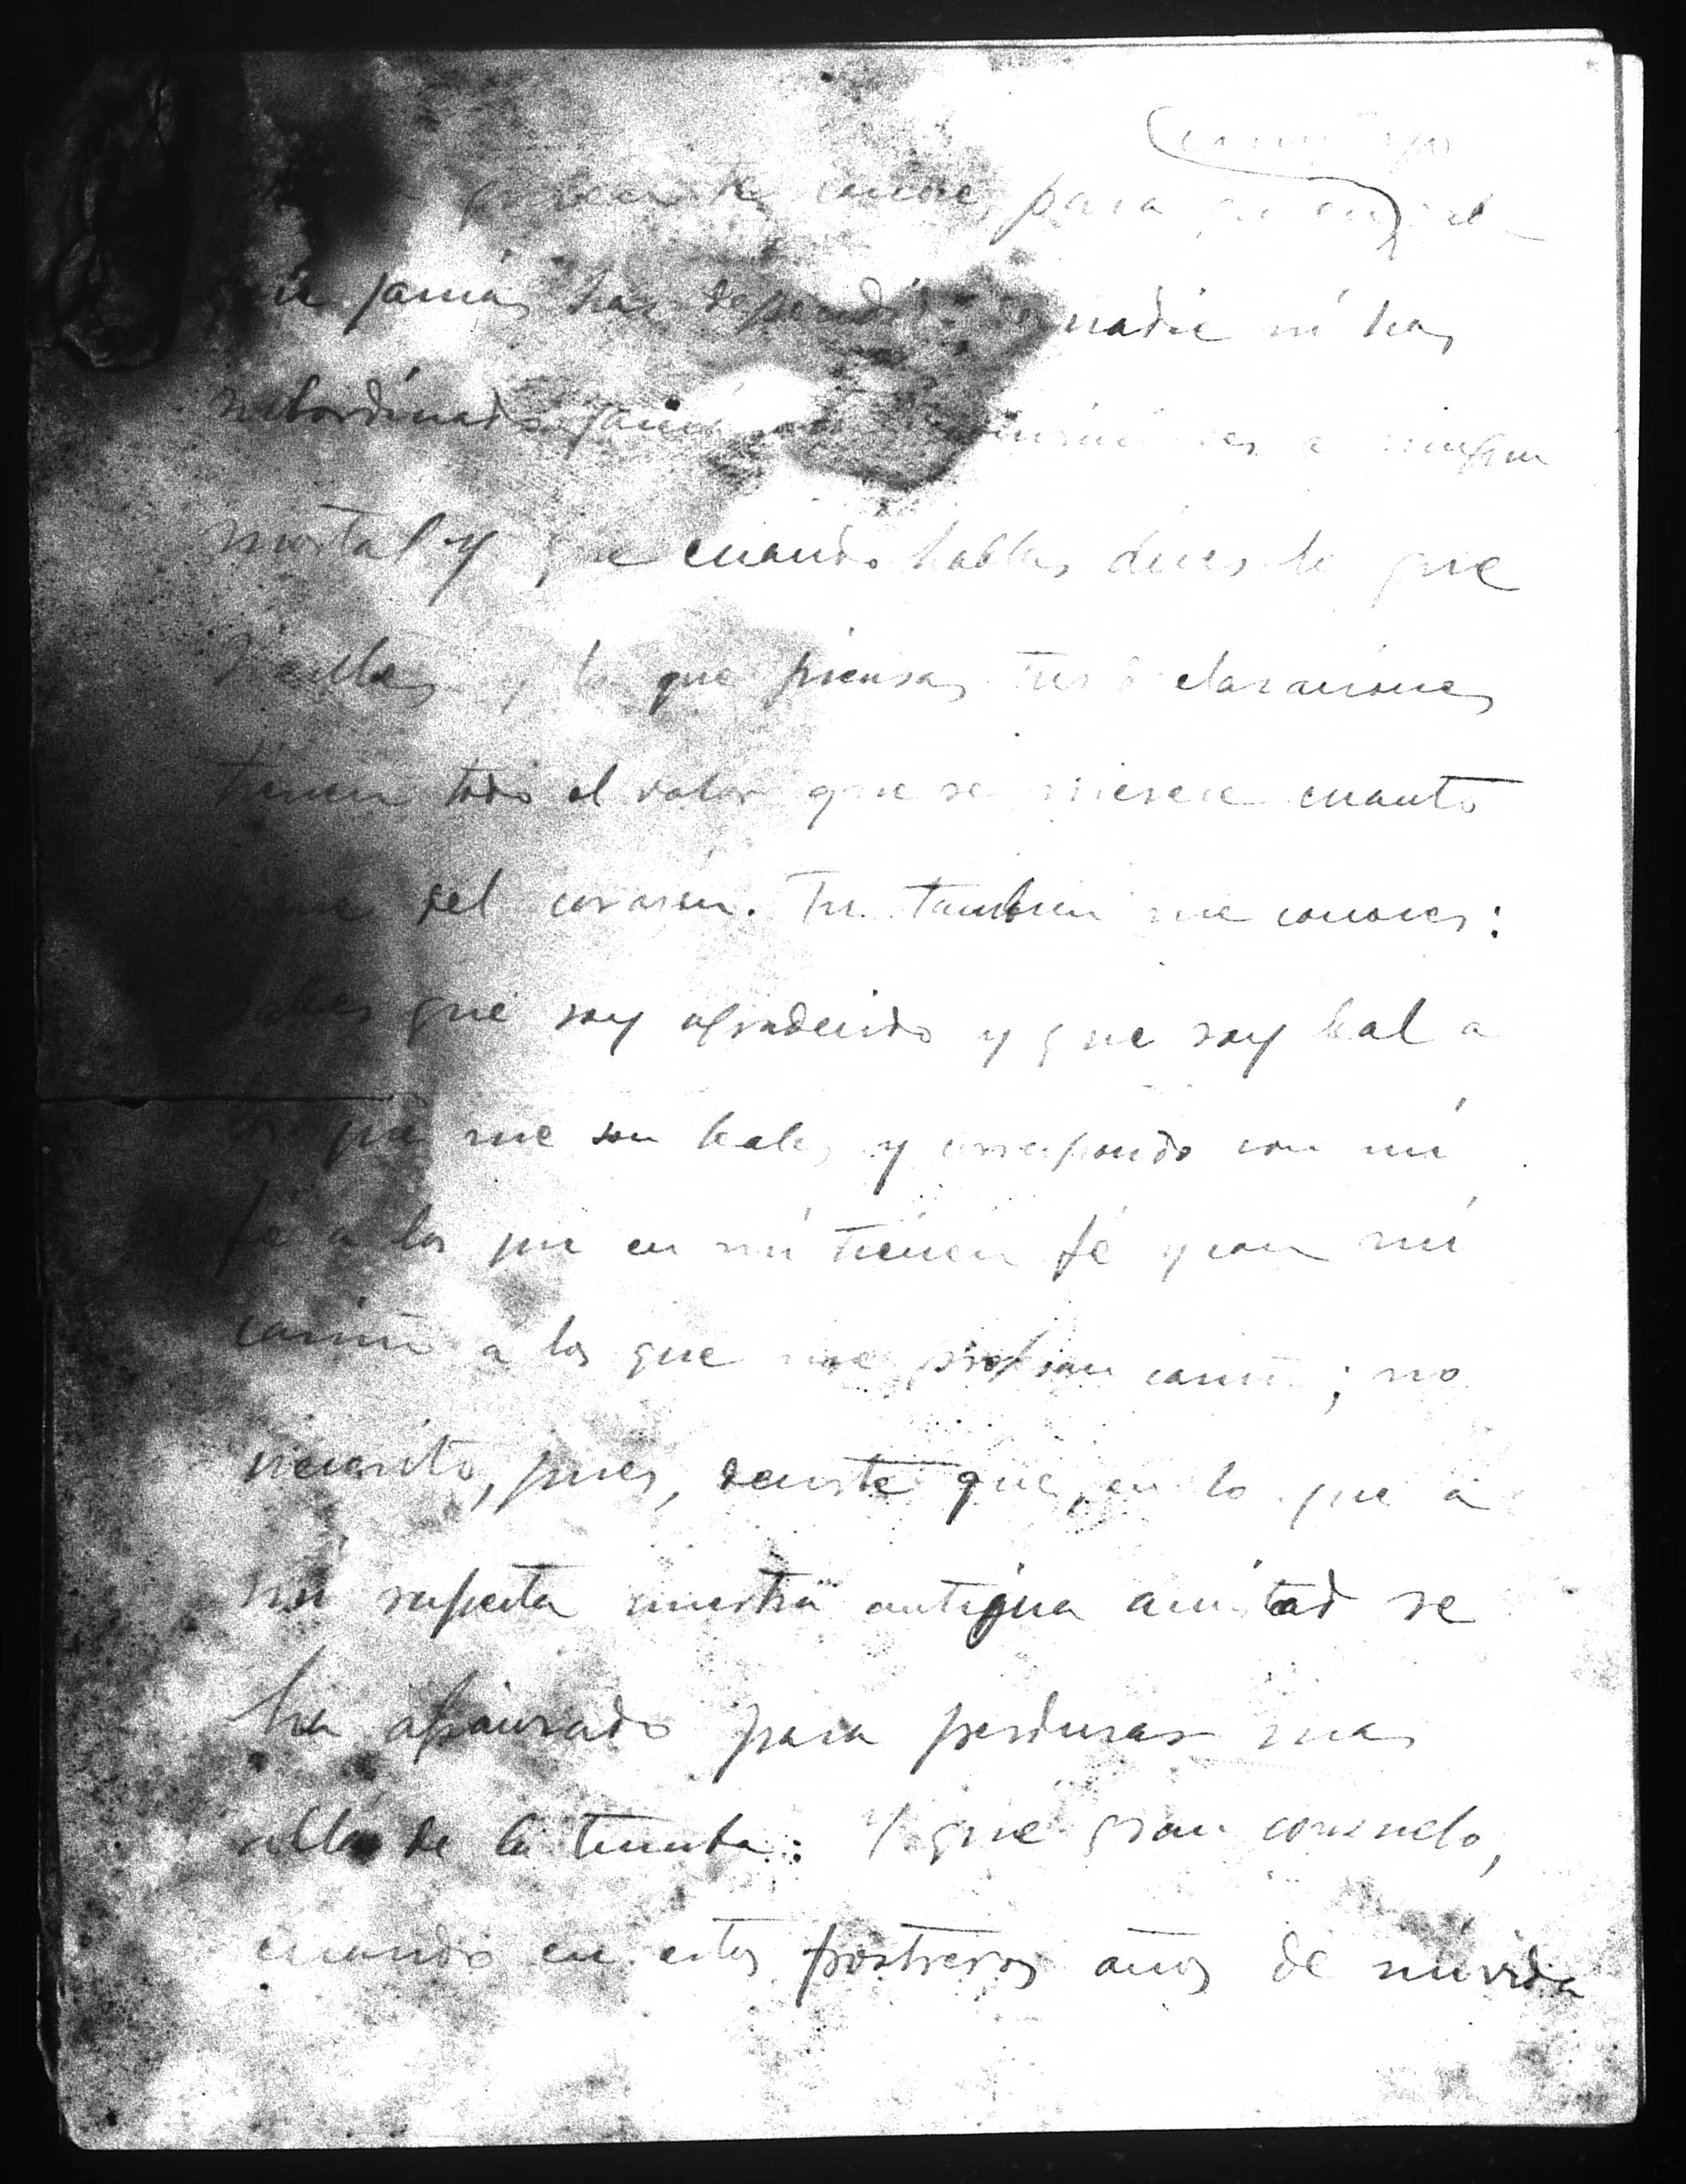 que bien te conoce, para
que jamás has dependido de nadie ni has
subordinado jamás a ningun
mortal y que cuando hablas dices lo que
sientes y lo que piensas tus declaraciones
tienen todo el valor que se merece cuanto
viene del corazon. Tu tambien me conoces:
sabes que soy agradecido y que soy leal a
los que me son leales y correspondo con mi
fé a los que en mi tienen fé y con mi
cariño a los que me profesan cariño; no
necesito, pues, decirte que, en lo que a
mi respecta nuestra antigua amistad se
ha afianzado para perdurar mas
allá de la tumba: Y que gran consuelo,
cuando en estos postreros años de mi vida